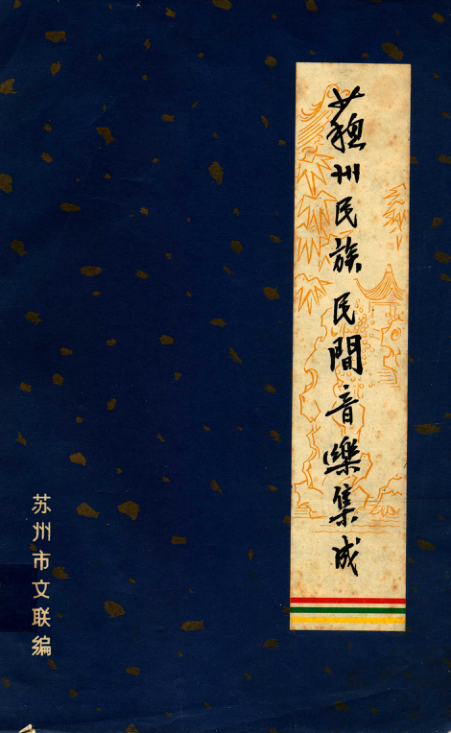 蘇州民族民間音樂集成
苏州市文联编